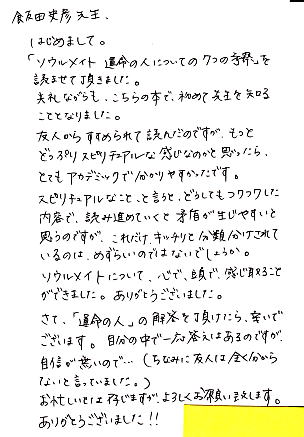 飯田史彦先生。
はじめまして。
「ソウルメイト 運命の人についての7つの考察」を
読ませて頂きました。
失礼ながらも、こちらの本で、初めて先生を知る
こととなりました。
友人からすすめられて読んだのですが、もっと
どっぷりスピリチュアルな感じなのかと思ったら、
とてもアカデミックで分かりやすかったです。
スピリチュアルなこと、と言うと、どうしてもフワフワした
内容で、読み進めていくと矛盾が生じやすいと
思うのですが、これだけ、キッチリと分類分けされて
いるのは、めずらしいのではないでしょうか。
ソウルメイトについて、心で、頭で、感じ取ること
ができました。ありがとうございました。
さて、「運命の人」の解答を頂けたら、幸いで
ございます。自分の中で一応答えはあるのですが、
自信が無いので…(ちなみに友人は全く分から
ないと言っていました。)
お忙しいとは存じますが、よろしくお願い致します。
ありがとうございました!!